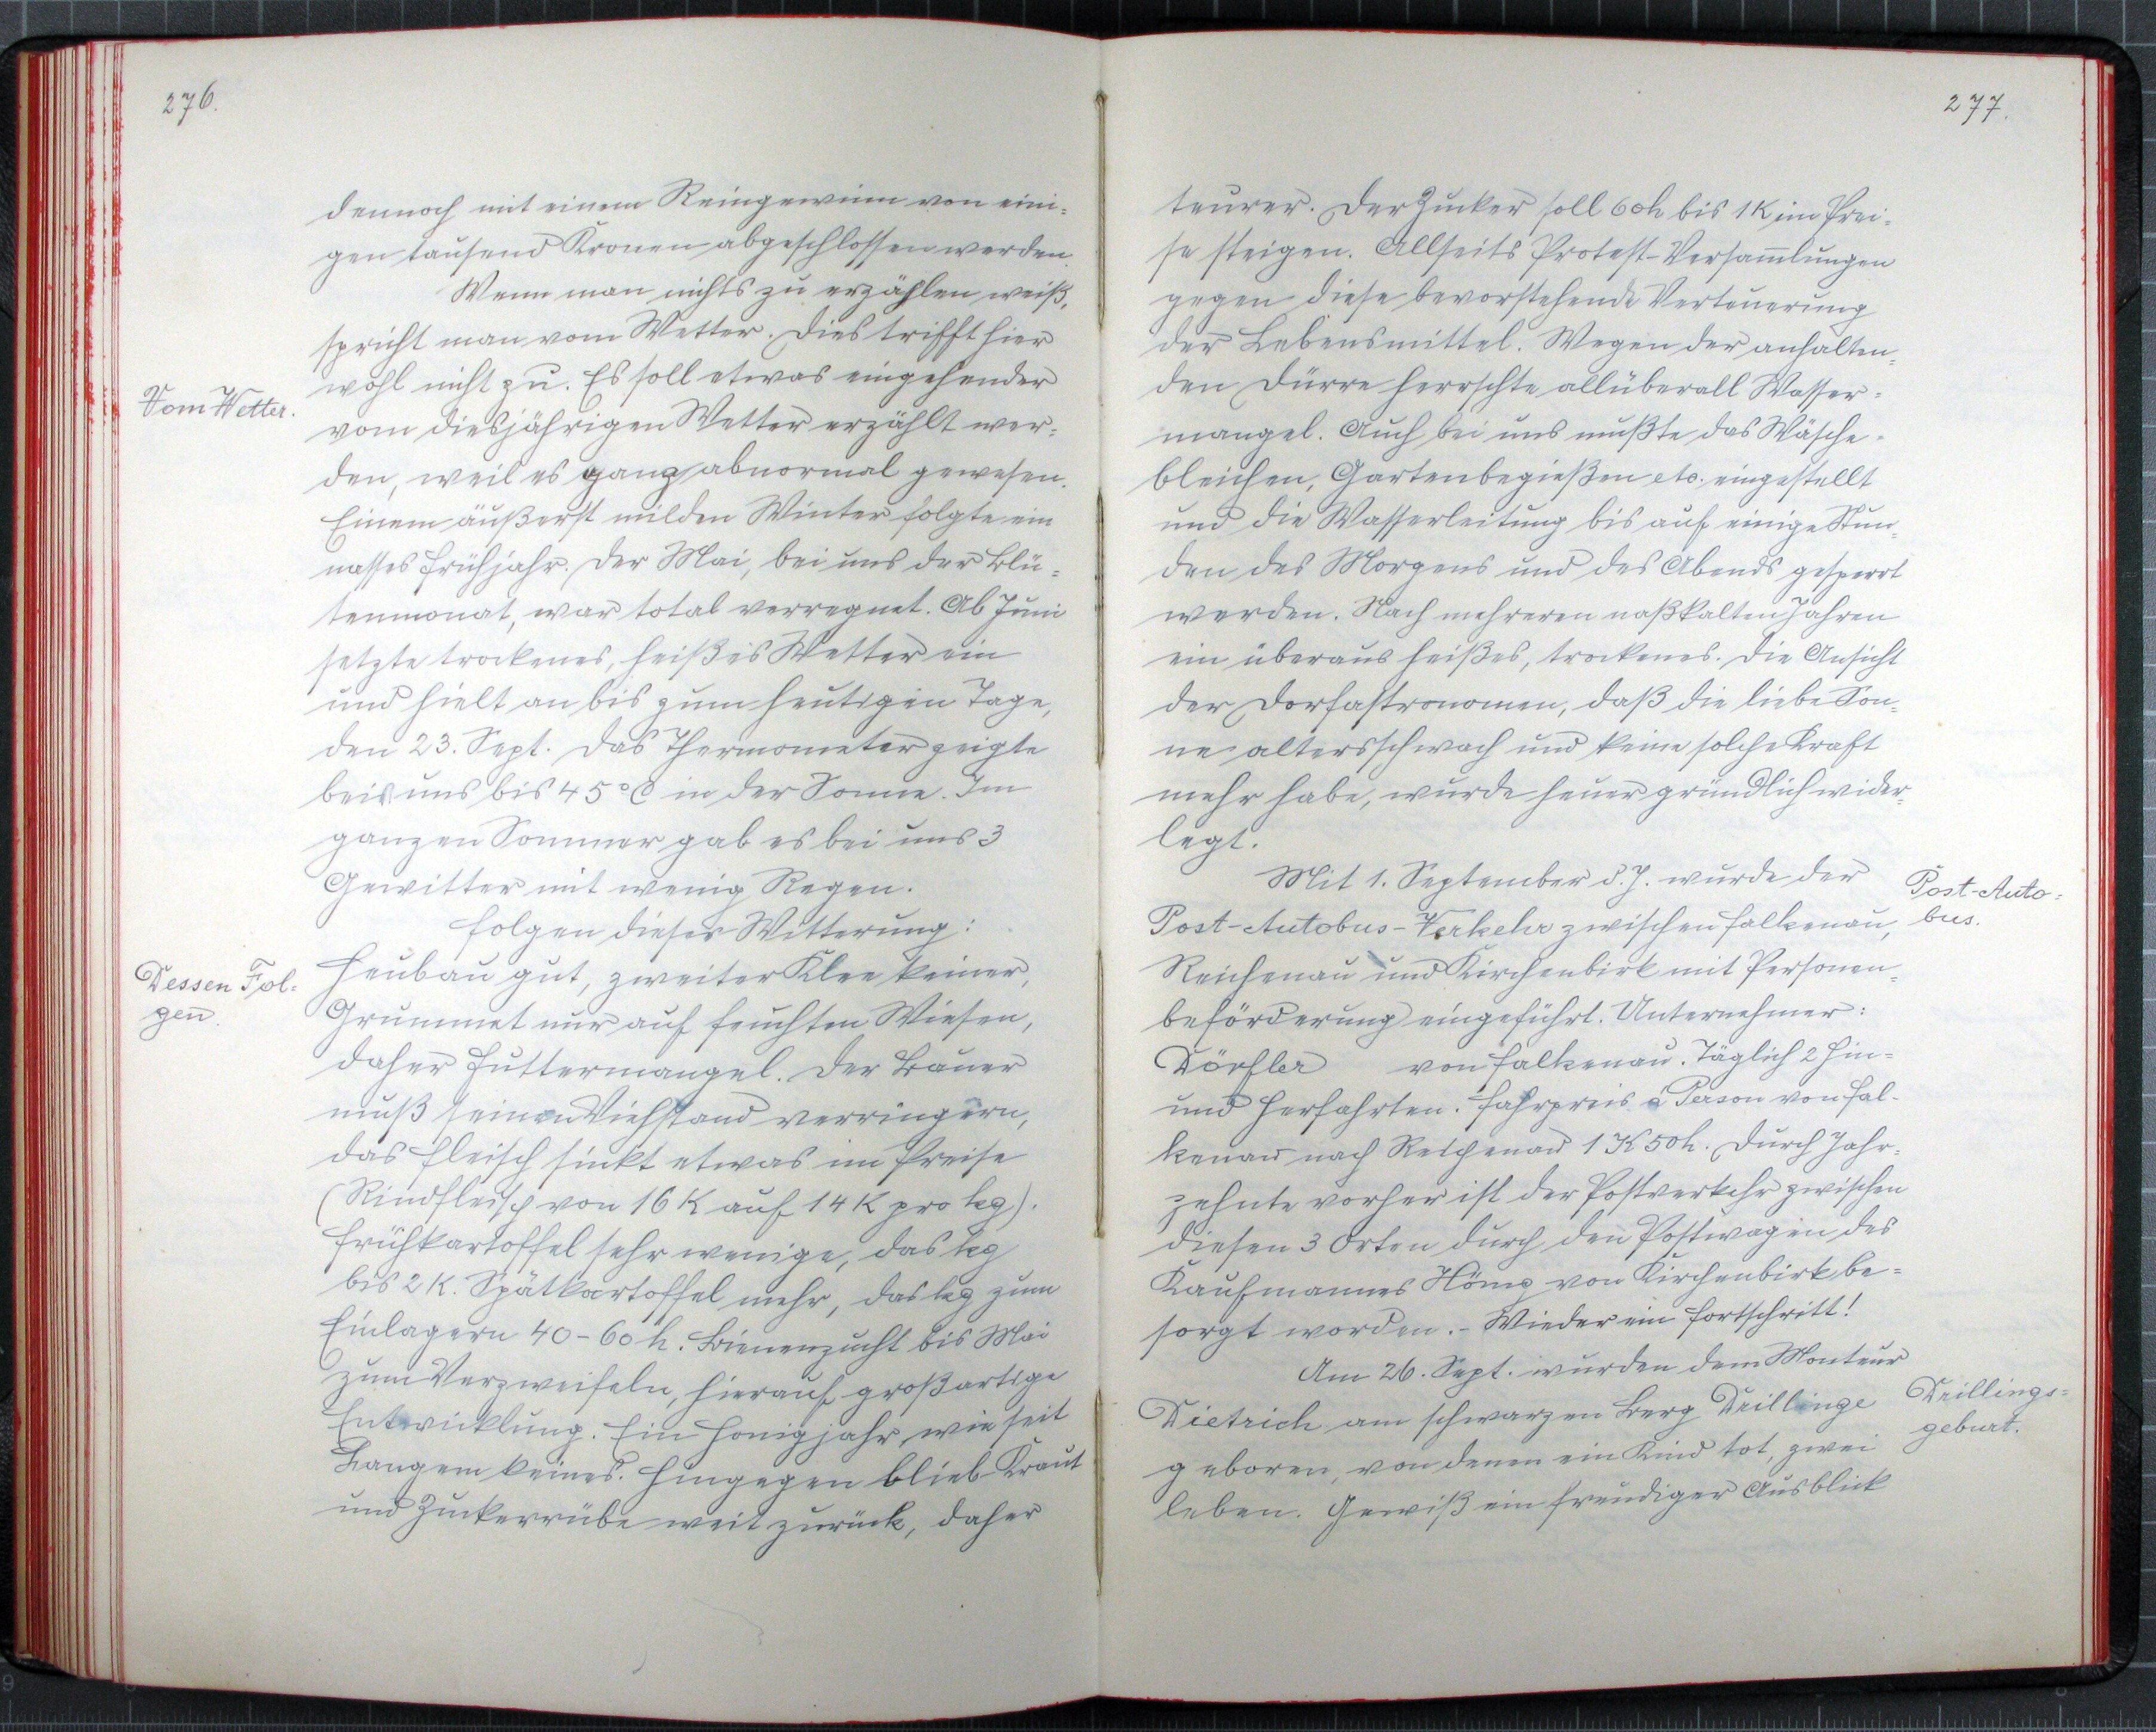 276.
dennoch mit einem Reingewinn von eini-
gen tausend Kronen abgeschlossen werden.
Wenn man nichts zu erzählen weiß,
spricht man vom Wetter. Dies trifft hier
wohl nicht zu. Es soll etwas eingehender
Vom Wetter.
vom diesjährigen Wetter erzählt wer-
den, weil es ganz abnormal gewesen.
Einem äußerst milden Winter folgte ein
nasses Frühjahr. Der Mai, bei uns der Blü-
tenmonat, war total verregnet. Ab Juni
setzte trockenes, heißes Wetter ein
und hielt an bis zum heutigen Tage,
den 23. Sept. Das Thermometer zeigte
bei uns bis 45°C in der Sonne. Im
ganzen Sommer gab es bei uns 3
Gewitter mit wenig Regen.
Folgen dieser Witterung:
Dessen Fol-
gen.
Heubau gut, zweiter Klee keiner,
Grummet nur auf feuchten Wiesen,
daher Futtermangel. Der Bauer
muß seinen Viehstand verringern,
das Fleisch sinkt etwas im Preise
(Rindfleisch von 16 K auf 14 K pro kg).
Frühkartoffel sehr wenige, das kg
bis 2 K. Spätkartoffel mehr, das kg zum
Einlagern 40-60 h. Bienenzucht bis Mai
zum Verzweifeln, hierauf großartige
Entwicklung. Ein Honigjahr wie seit
Langem keines. Hingegen blieb Kraut
und Zuckerrübe weit zurück, daher
277.
teurer. Der Zucker soll 60h bis 1K im Prei-
se steigen. Allseits Protest-Versam̅lungen
gegen diese bevorstehende Verteuerung
der Lebensmittel. Wegen der anhalten-
den Dürre herrschte allüberall Wasser-
mangel. Auch bei uns mußte das Wäsche-
bleichen, Gartenbegießen etc. eingestellt
und die Wasserleitung bis auf einige Stun-
den des Morgens und des Abends gesperrt
werden. Nach mehreren naßkalten Jahren
ein überaus heißes, trockenes. Die Ansicht
der Dorfastronomen, daß die liebe Son-
ne altersschwach und keine solche Kraft
mehr habe, wurde heuer gründlich wider-
legt.
Mit 1. September d. J. wurde der
Post-Auto-
bus.
Post-Autobus-Verkehr zwischen Falkenau,
Reichenau und Kirchenbirk mit Personen-
beförderung eingeführt. Unternehmer:
Dörfler von Falkenau. Täglich 2 Hin-
und Herfahrten. Fahrpreis à Person von Fal-
kenau nach Reichenau 1 K 50h. Durch Jahr-
zehnte vorher ist der Postverkehr zwischen
diesen 3 Orten durch den Postwagen des
Kaufmannes von Kirchenbirk be-
sorgt worden. - Wieder ein Fortschritt!
Am 26. Sept. wurden dem Monteur
Drillings-
geburt.
Dietrich am schwarzen Berg Drillinge
geboren, von denen ein Kind tot, zwei
leben. Gewiß ein freudiger Ausblick